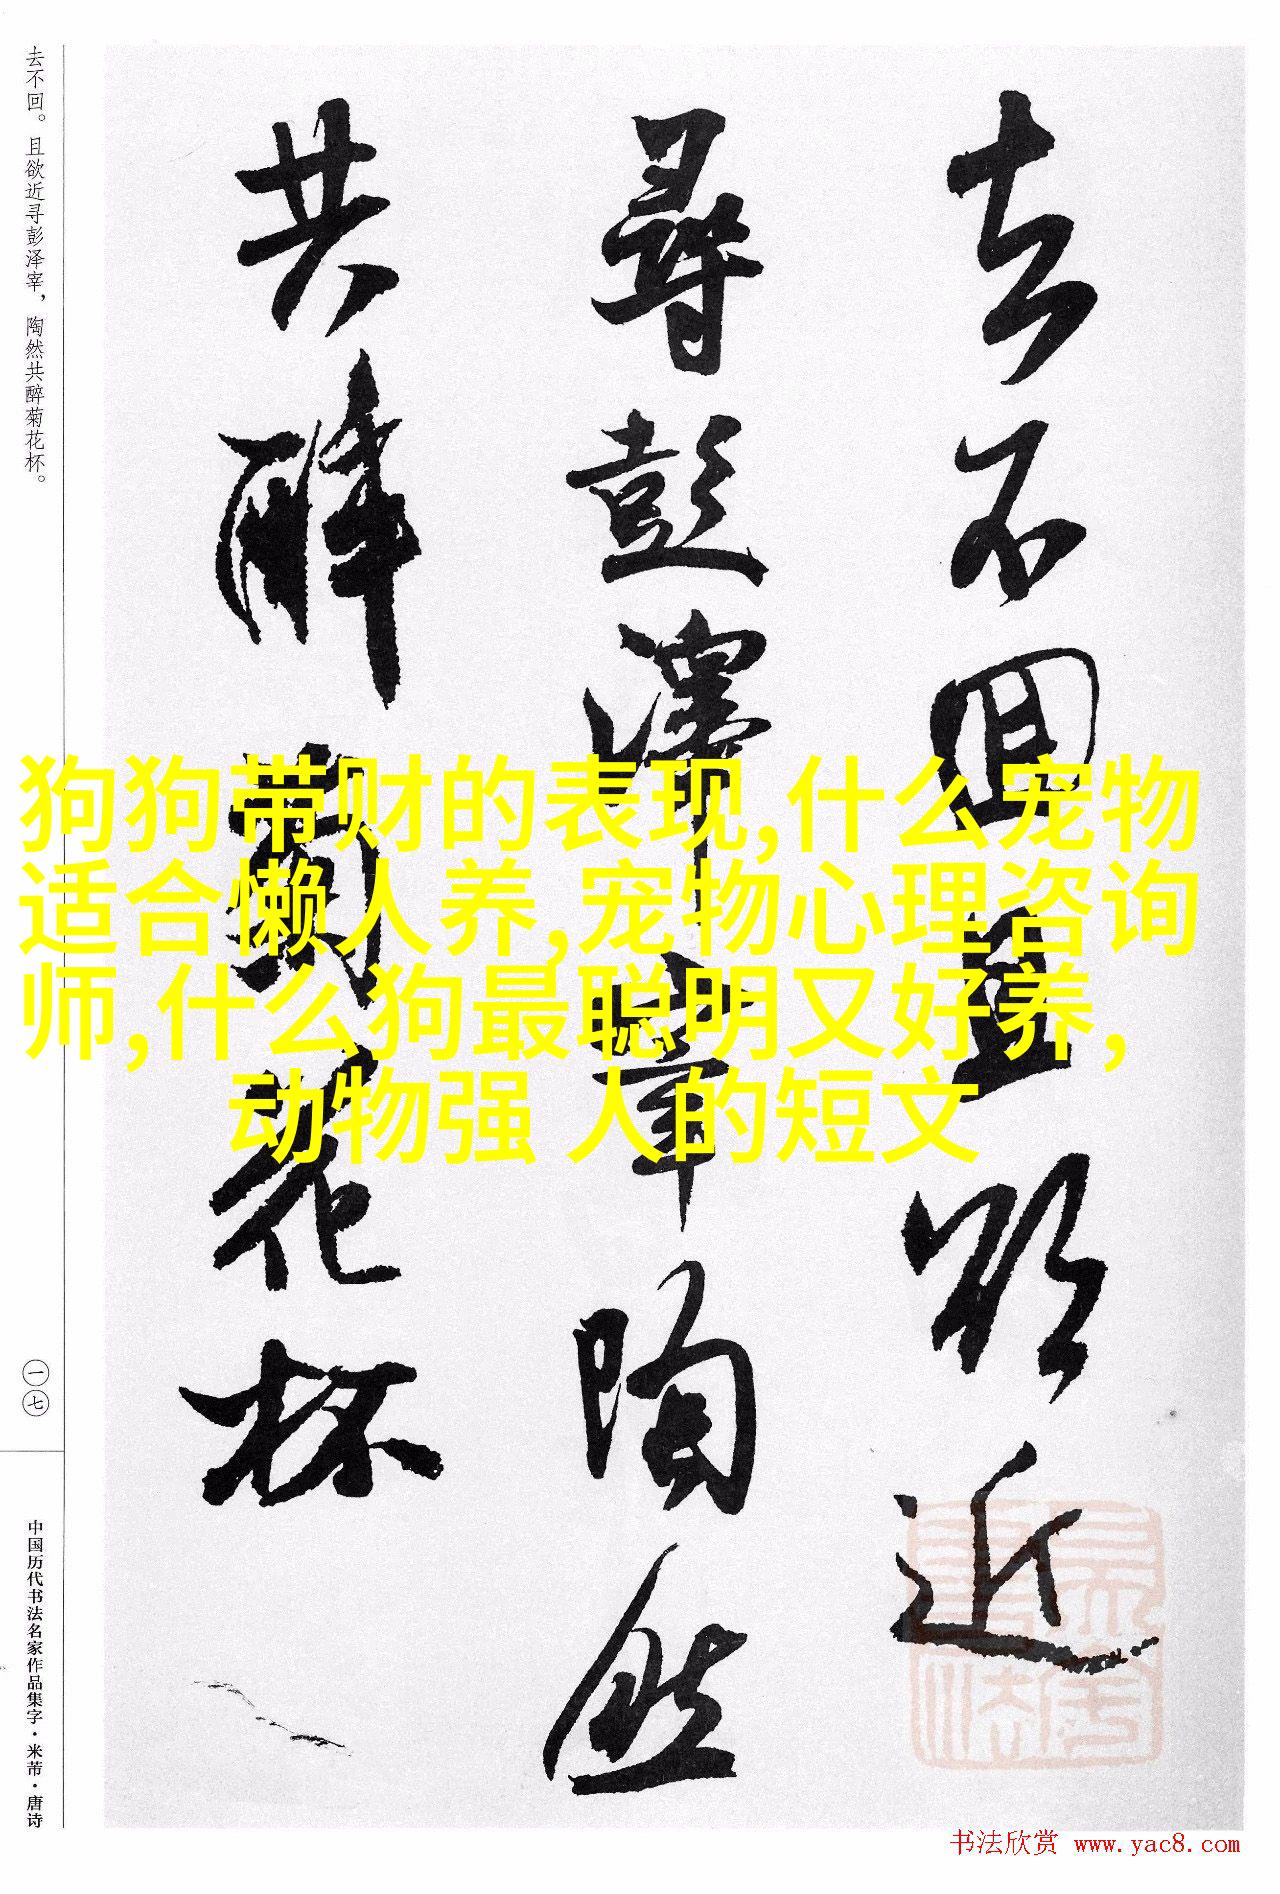 去不回且欲近
尋彭澤宰陶然
共醉菊花杯
去不回。且欲近寻彭泽宰，陶然共醉菊花杯。
一七
中国历代书法名家作品集字·米芾·唐诗
狗狗带财的表现,什么宠物
适合懒人养,宠物心理咨询
师,什么狗最聪明又好养,
动物强 人的短文
书法欣赏 www.yac8.com